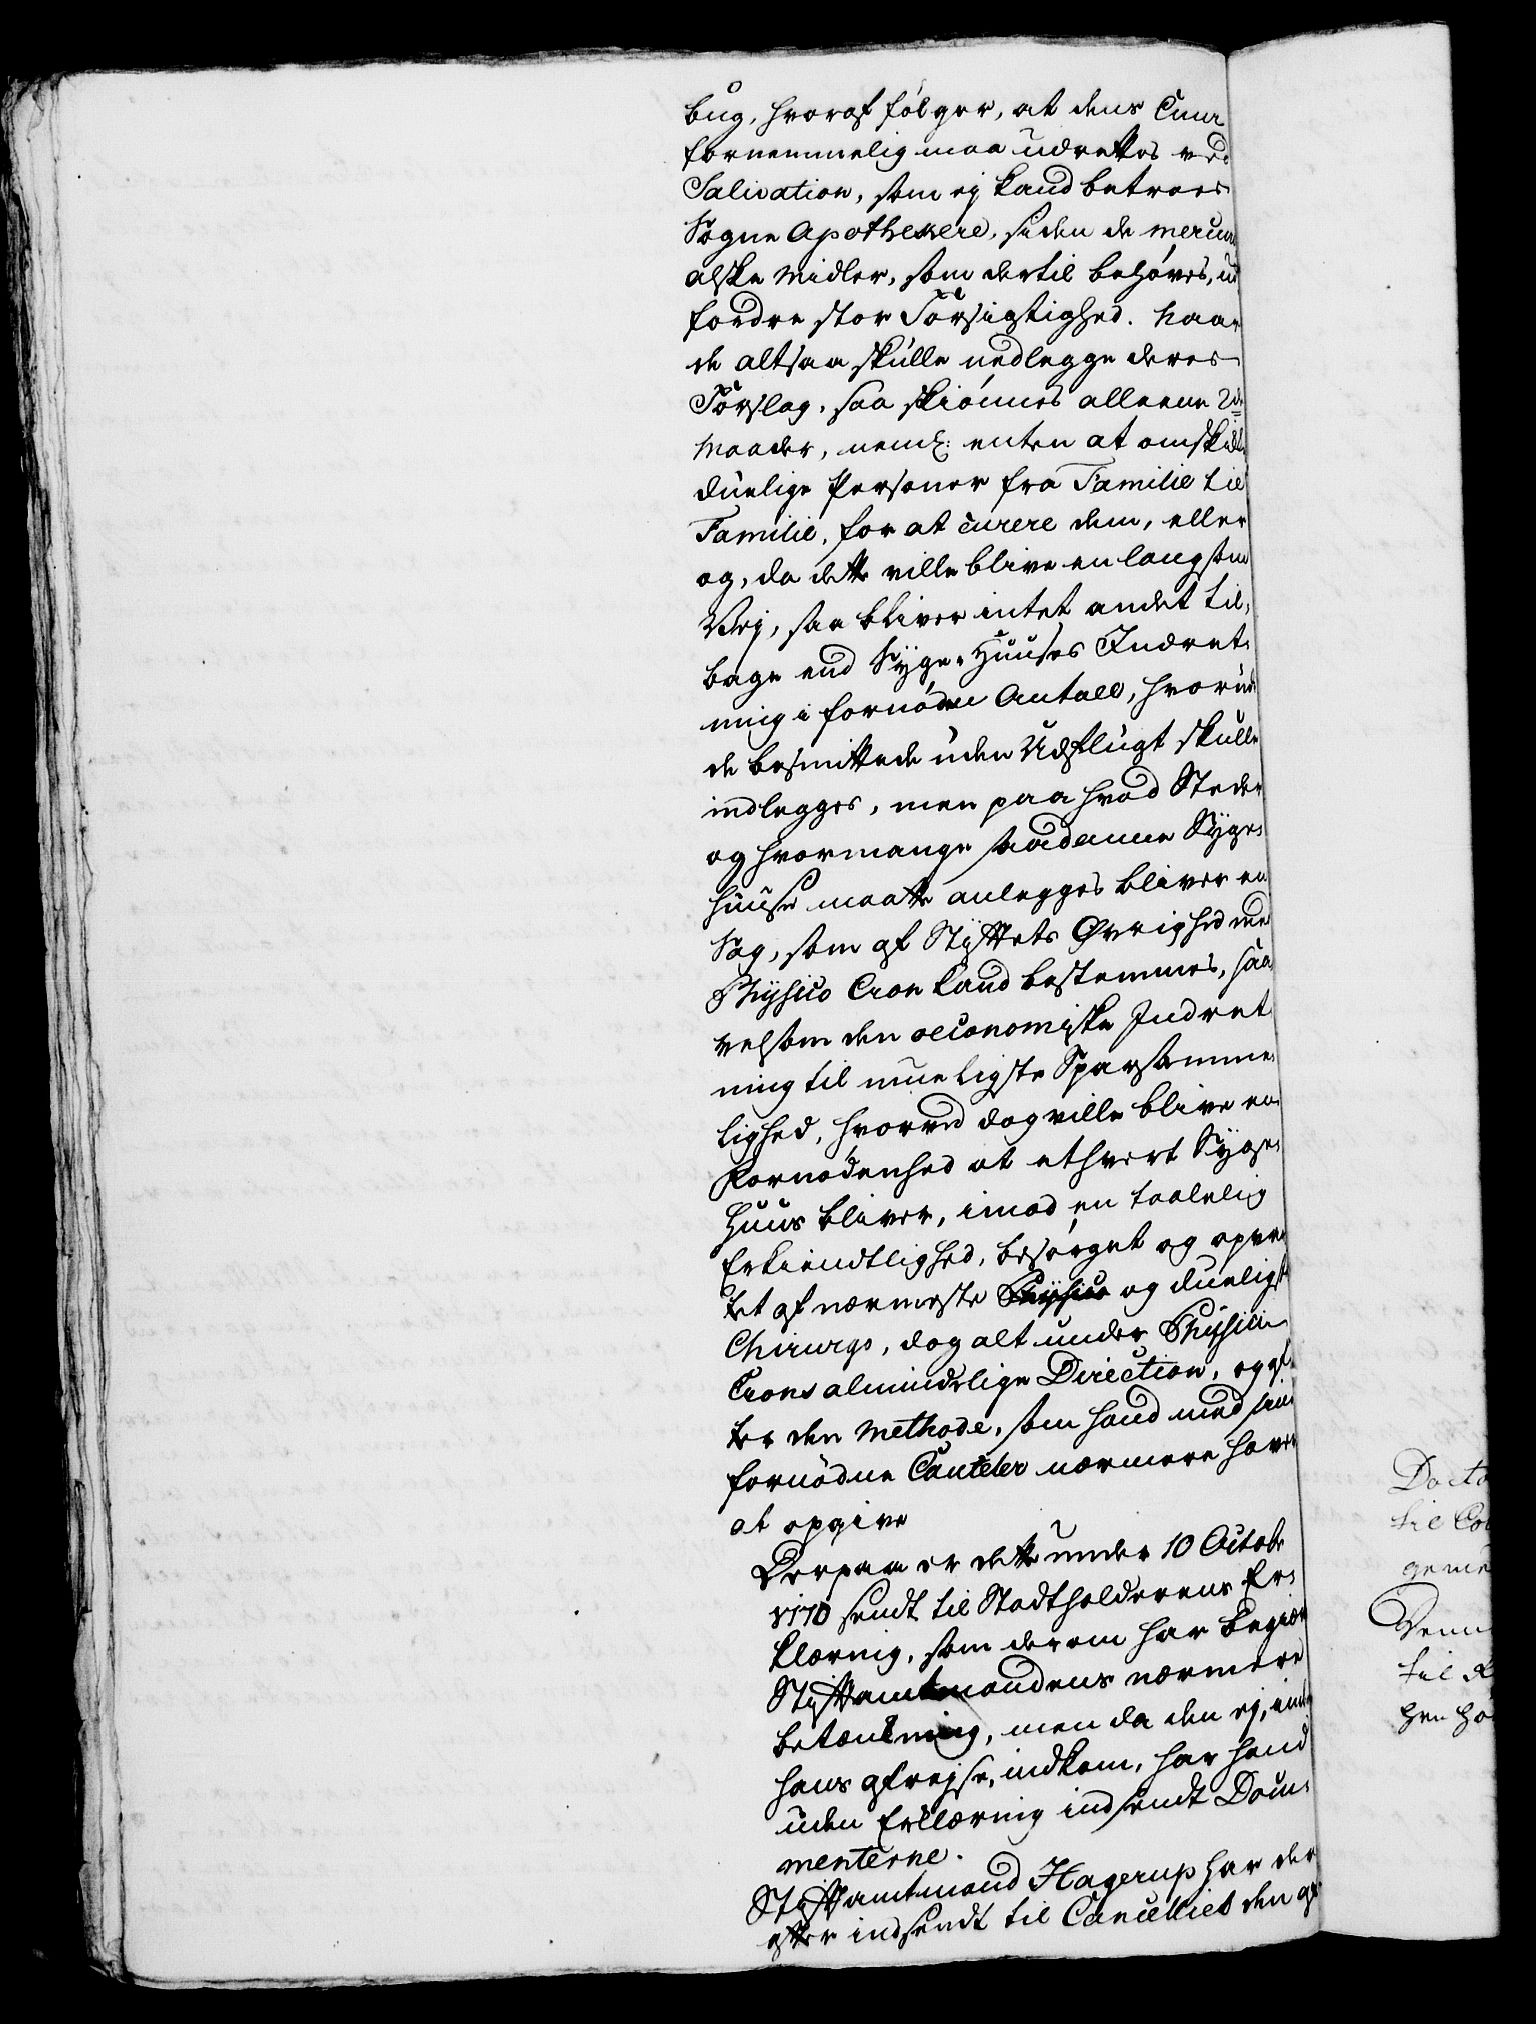 bug, hvoraf følger, at dens Cuur
fornemmelig maa udrettes ved
Salivation, som ej kand betroes
Sogne Apothekere, siden de mercuri
alske Midler, som dertil behøves, ud
fordre stor Forsigtighed. Naar
de altsaa skulle nedlegge deres
Forslag, saa skiønnes alleene 2de
Maader, neml: enten at omskikke
duelige Personer fra Familie til
Familie, for at curere dem, eller
og, da dette ville blive en langsom
Vej, saa bliver intet andet til,
bage end Syge-Huuses Indret,
ning i fornøden Antall, hvorudi
de besmittede uden Udflugt skulle
indlegges, men paa hvad Steder
og hvormange saadanne Syge,
huuse maatte anlegges bliver en
Sag, som af Stiftets Øvrighed med
Physico Cron kand bestemmes, saa
velsom den oeconomiske Indret
ning til mueligste Sparsomme,
lighed, hvorved dog ville blive en
Fornødenhed at ethvert Syge,
Huus bliver, imod en taalelig
Erkiendtlighed, besørget og opvar
tet af nærmeste Physico og dueligste
Chirurgo, dog alt under Physici
Crons almindelige Direction, og ef
ter den Methode, som hand med sine
fornødne Cauteler nærmere haver
at opgive
Derpaa er dette under 10 Octobr
1770 sendt til Stadtholderens Er,
klæring, som derom har begiært
Stiftamtmandens nærmere
betænkning, men da den ej, inden
hans afrejse, indkom, har hand
uden Erklæring indsendt Docu,
menterne.
Stiftamtmand Hagerup har der
efter indsendt til Cancelliet den af
Docto
til Co
geme
Denn
til
hen hø